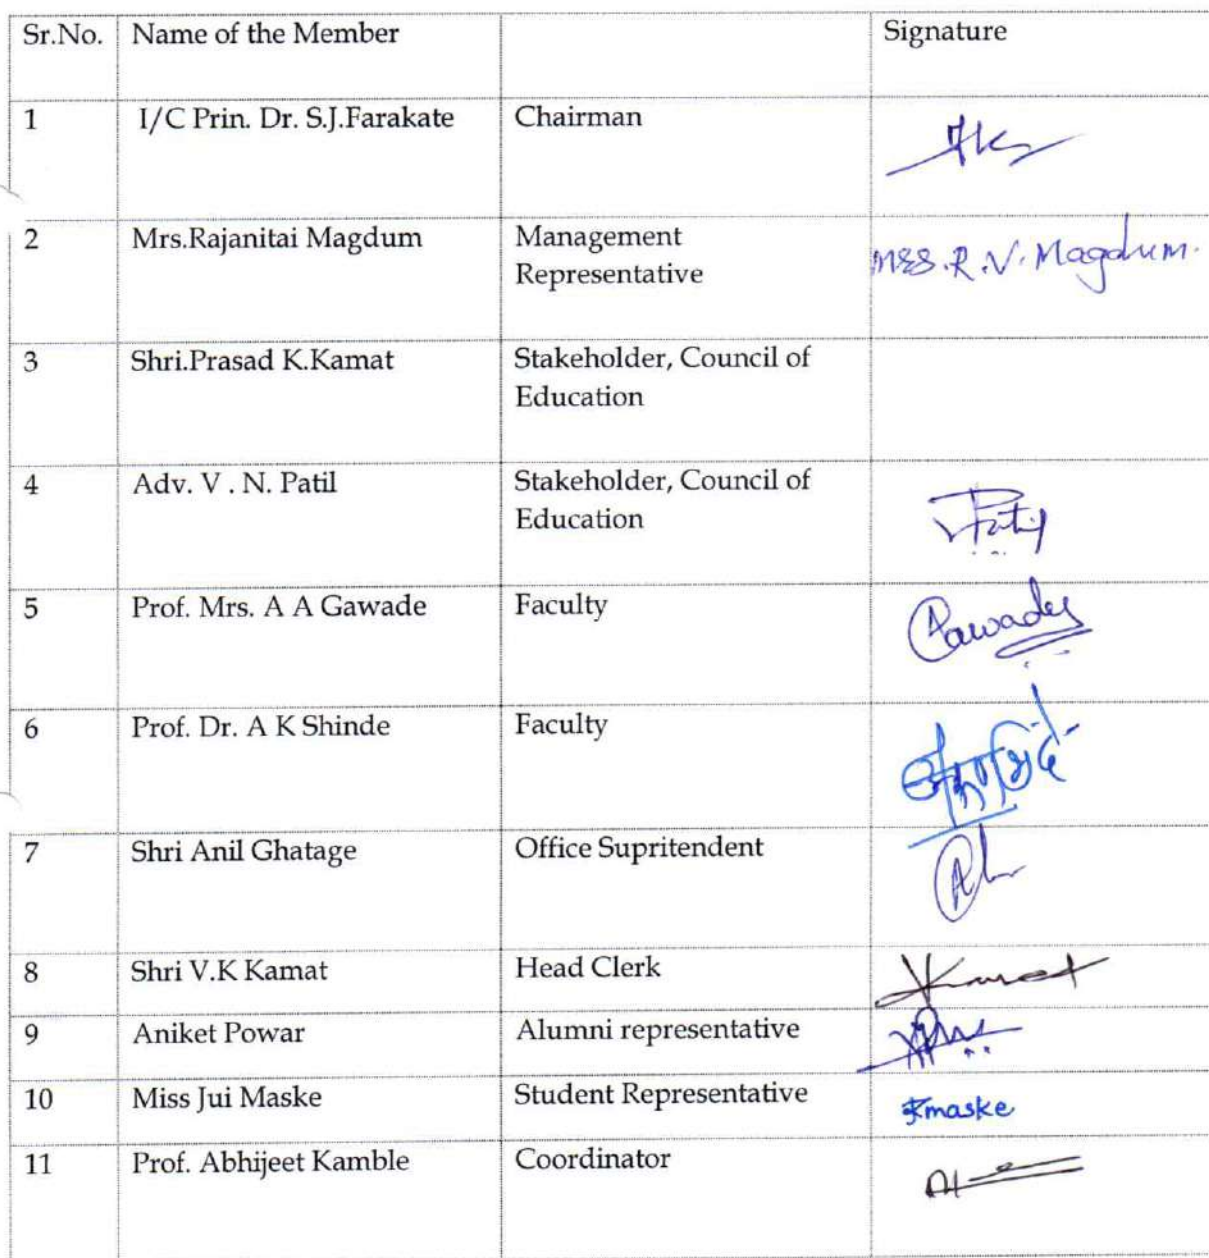 Sr.No. Name of the Member Signature
1 I/C Prin. Dr. S.J.Farakate Chairman
2 Mrs.Rajanitai Magdum Management Mrs. R. V. Magdum.
Representative
3 Shri.Prasad K.Kamat Stakeholder, Council of
Education
4 Adv. V . N. Patil Stakeholder, Council of
Education Patil
5 Prof. Mrs. A A Gawade Faculty
6 Prof. Dr. A K Shinde Faculty
7 Shri Anil Ghatage Office Supritendent
8 Shri V.K Kamat Head Clerk
9 Aniket Powar Alumni representative
10 Miss Jui Maske Student Representative
11 Prof. Abhijeet Kamble Coordinator